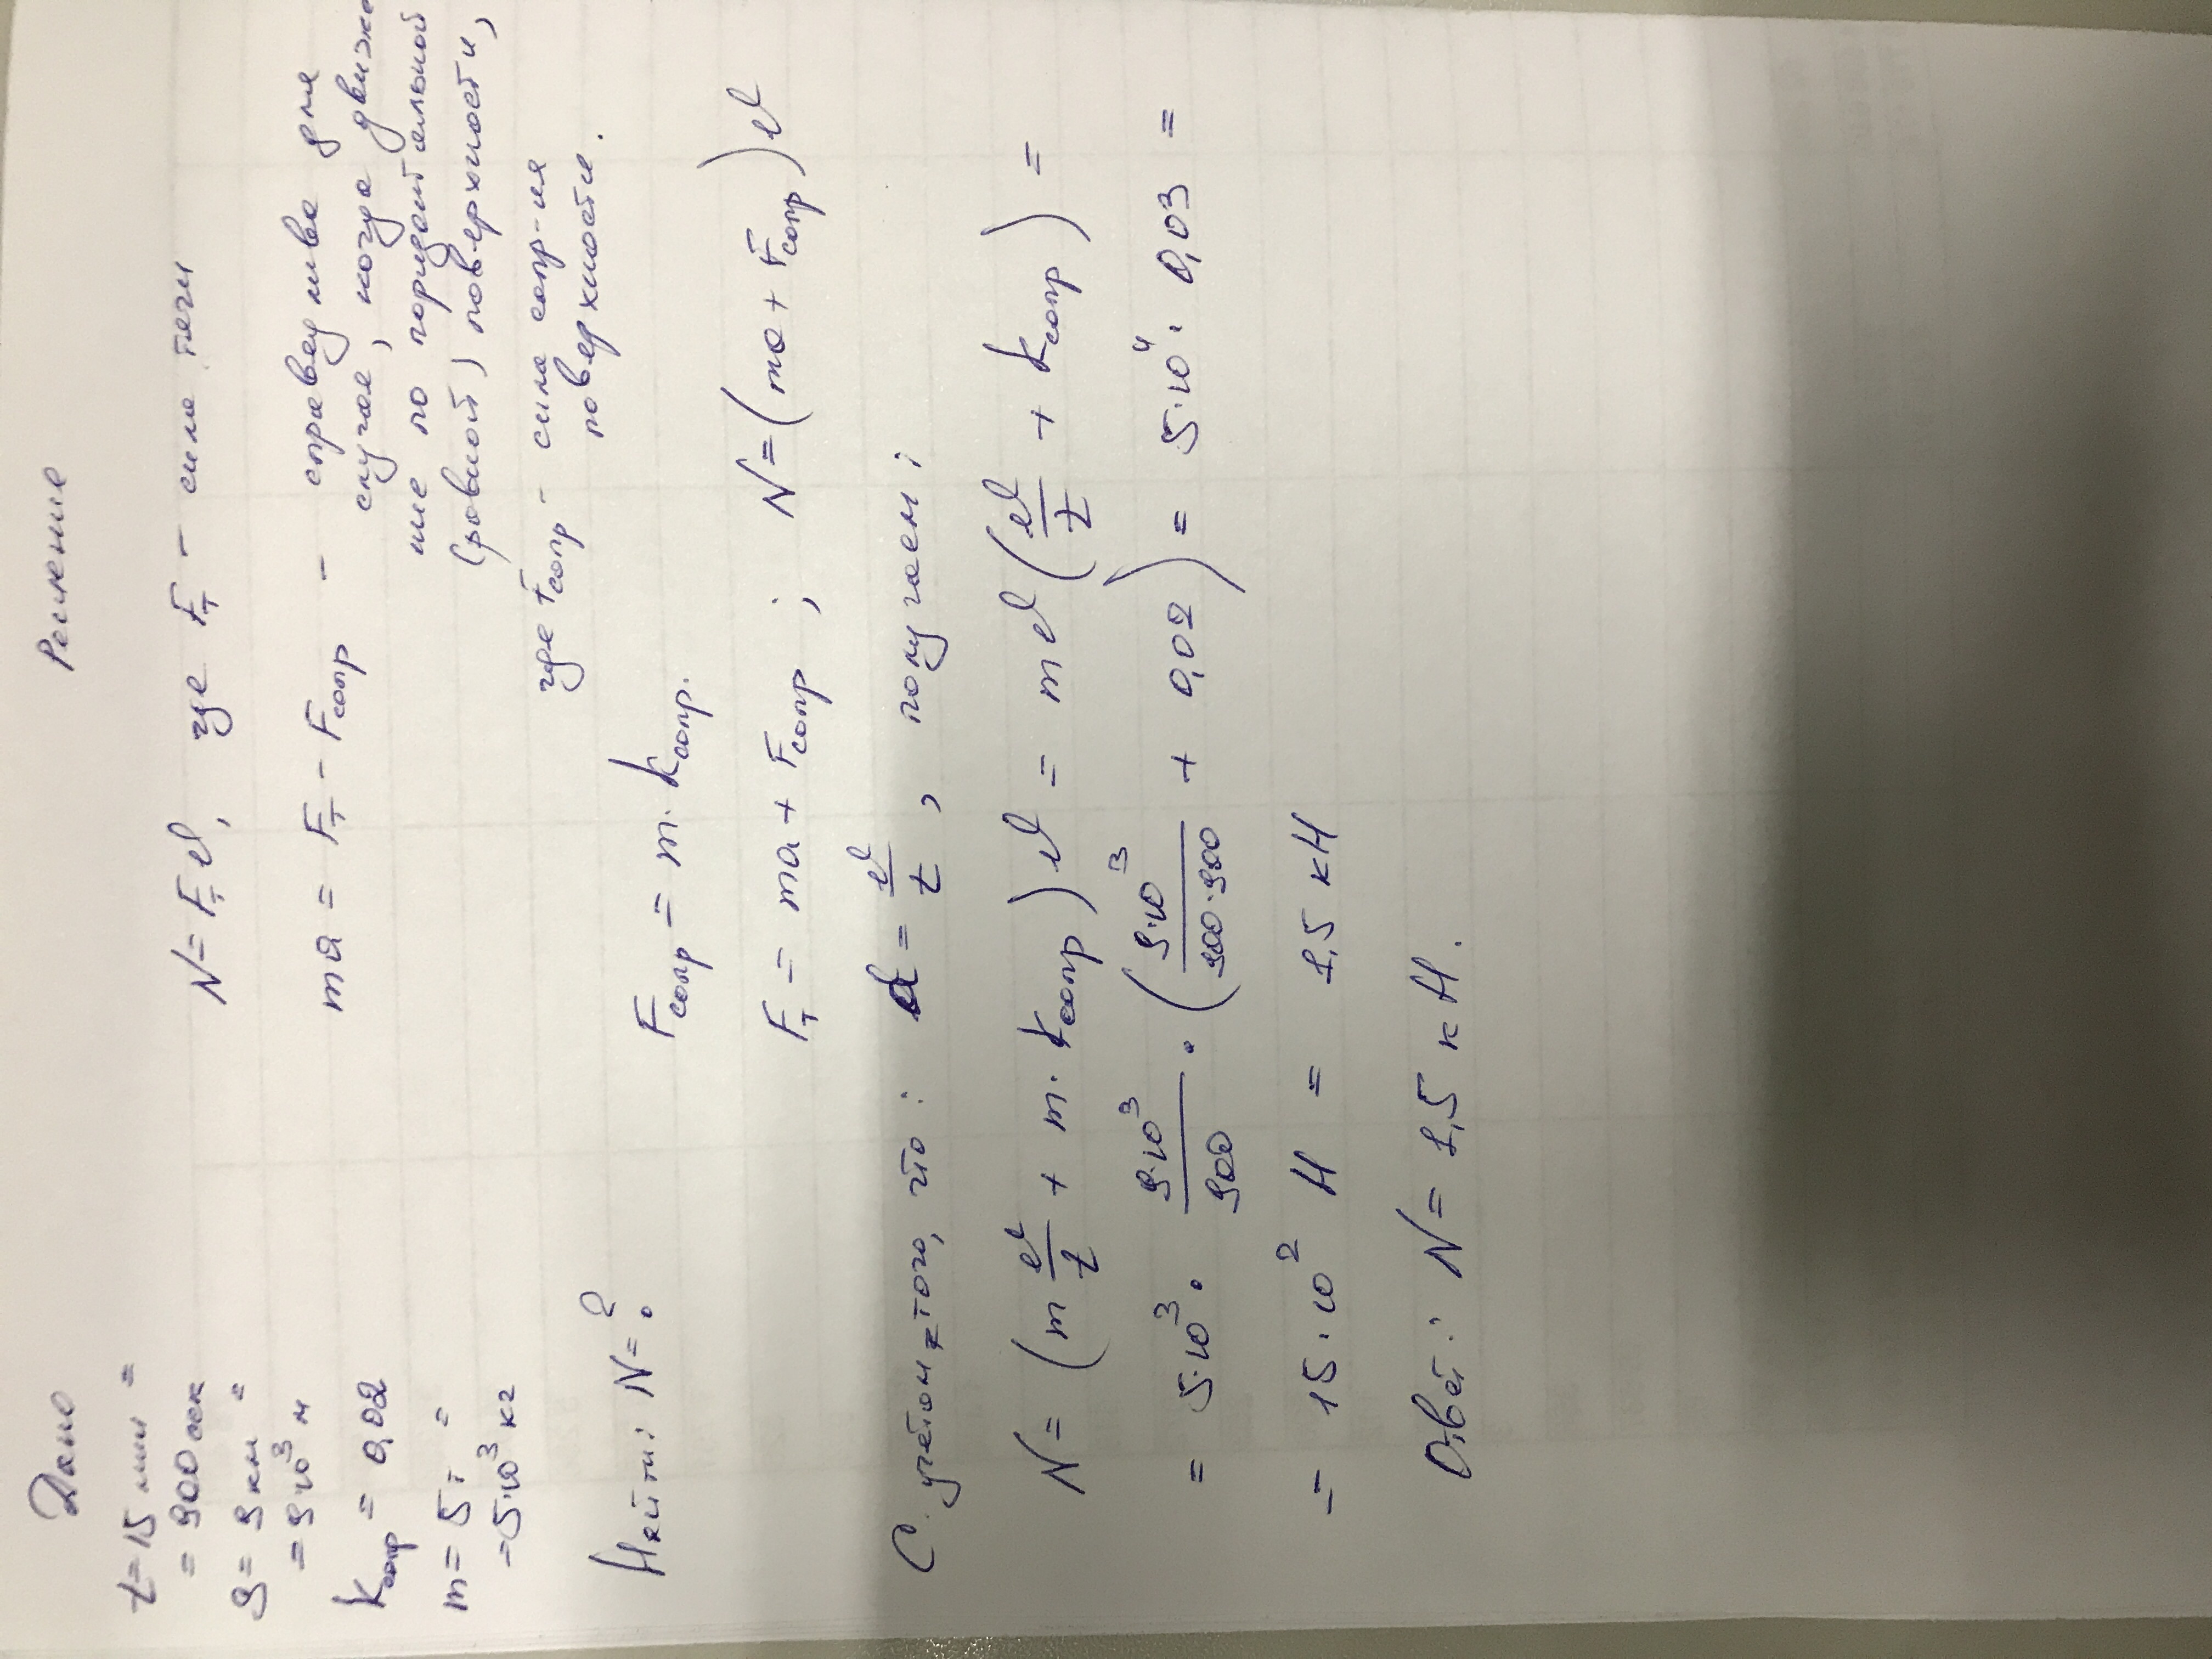 Дано
t = 15 мин =
= 900 сек
S = 9 км =
= 9·10³ м
kсопр = 0,02
m = 5т =
= 5·10³ кг
Найти: N = ?
Решение
N = Fт v, где Fт – сила тяги
ma = Fт – Fсопр – справедливо для
случая, когда движе
ние по горизонтальной
(ровной) поверхности,
где Fсопр – сила сопр-ия
поверхности.
Fсопр = m · kсопр.
Fт = ma + Fсопр ; N = (ma + Fсопр) v
С учётом того, что : a = v/t , получаем :
N = (m v/t + m · kсопр) v = m v (v/t + kсопр) =
= 5·10³ · 9·10³/900 · (9·10³/900·900 + 0,02) = 5·10⁴ · 0,03 =
= 15·10² Н = 1,5 кН
Ответ : N = 1,5 кН.